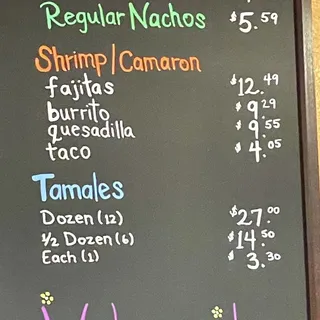 Regular Nachos $5.59
Shrimp/Camaron
fajitas $12.49
burrito $9.29
quesadilla $9.55
taco $4.05
Tamales
Dozen (12) $27.00
½ Dozen (6) $14.50
Each (1) $3.30